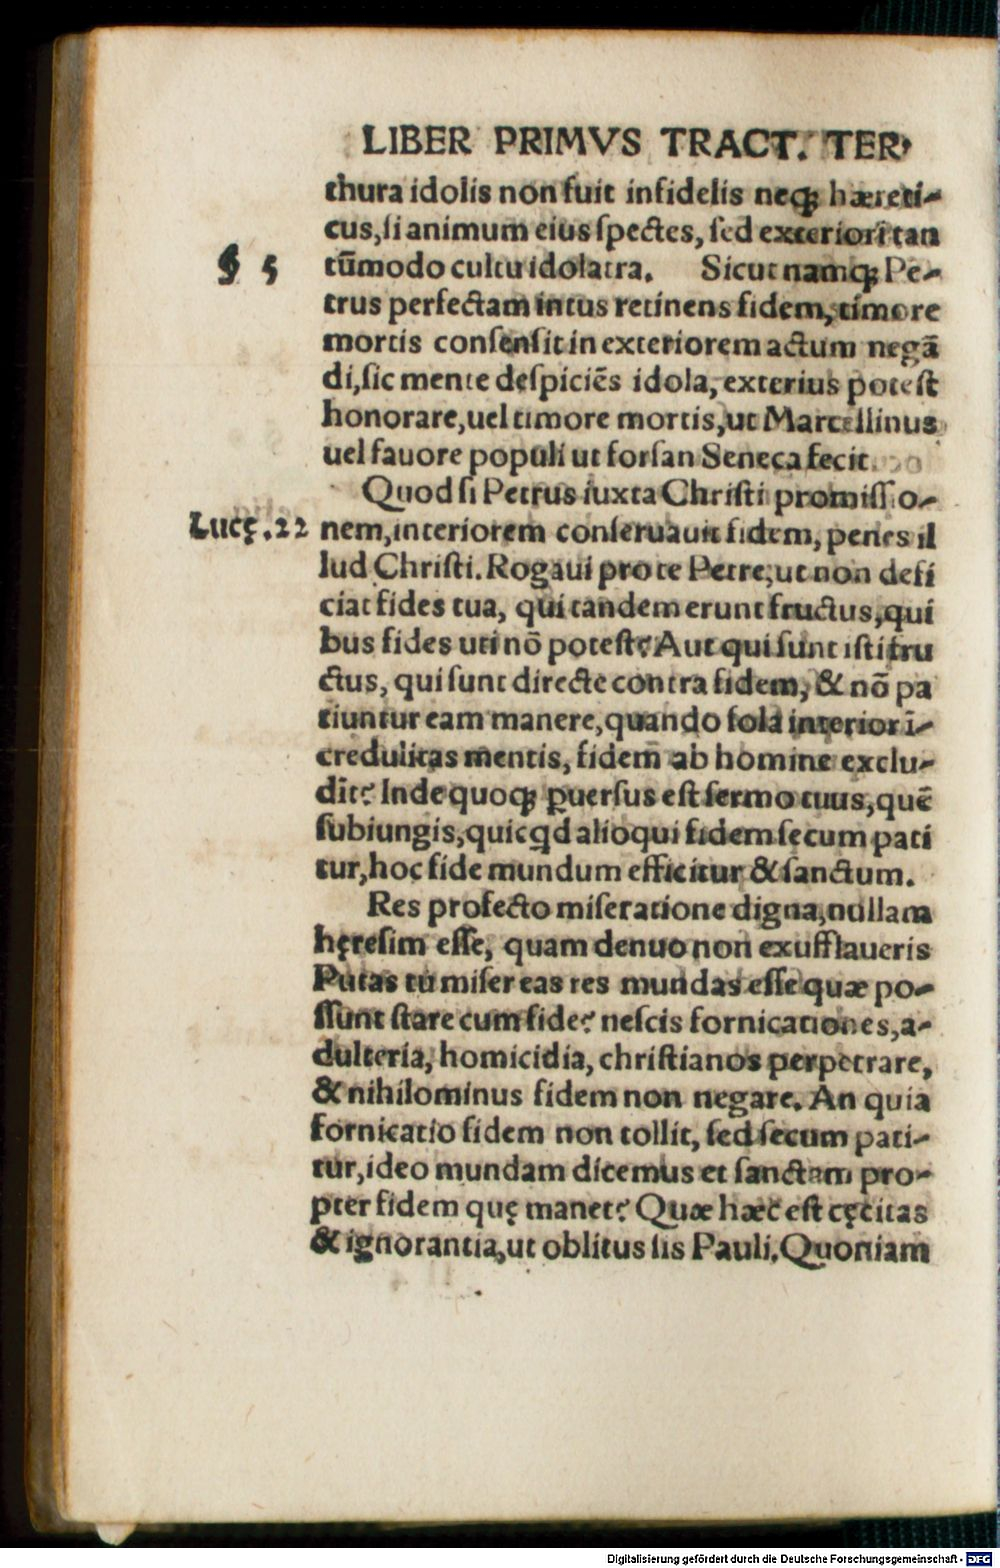 LIBER PRIMVS TRACT. TER-
thura idolis non fuit infidelis neqꝫ hæreti-
cus, si animum eius spectes, sed exteriori tan
§ 5 tũmodo cultu idolatra. Sicut namqꝫ Pe-
trus perfectam intus retinens fidem, timore
mortis consensit in exteriorem actum negã
di, sic mente despiciẽs idola, exterius potest
honorare, uel timore mortis, ut Marcellinus
uel fauore populi ut forsan Seneca fecit.
Quod si Petrus iuxta Christi promissio-
Lucę. 22 nem, interiorem conseruauit fidem, penes il
lud Christi. Rogaui pro te Petre, ut non defi
ciat fides tua, qui tandem erunt fructus, qui
bus fides uti nõ potest? Aut qui sunt isti fru
ctus, qui sunt directe contra fidem, & nõ pa
tiuntur eam manere, quando sola interior ĩ-
credulitas mentis, fidem ab homine exclu-
dit? Inde quoqꝫ ꝑuersus est sermo tuus, quẽ
subiungis, quicꝗd alioqui fidem secum pati
tur, hoc fide mundum efficitur & sanctum.
Res profecto miseratione digna, nullam
hęresim esse, quam denuo non exufflaueris
Putas tu miser eas res mundas esse quæ po-
ssunt stare cum fide? nescis fornicationes, a-
dulteria, homicidia, christianos perpetrare,
& nihilominus fidem non negare. An quia
fornicatio fidem non tollit, sed secum pati-
tur, ideo mundam dicemus et sanctam pro-
pter fidem quę manet? Quæ hæc est cęcitas
& ignorantia, ut oblitus sis Pauli. Quoniam
Digitalisierung gefördert durch die Deutsche Forschungsgemeinschaft - DFG